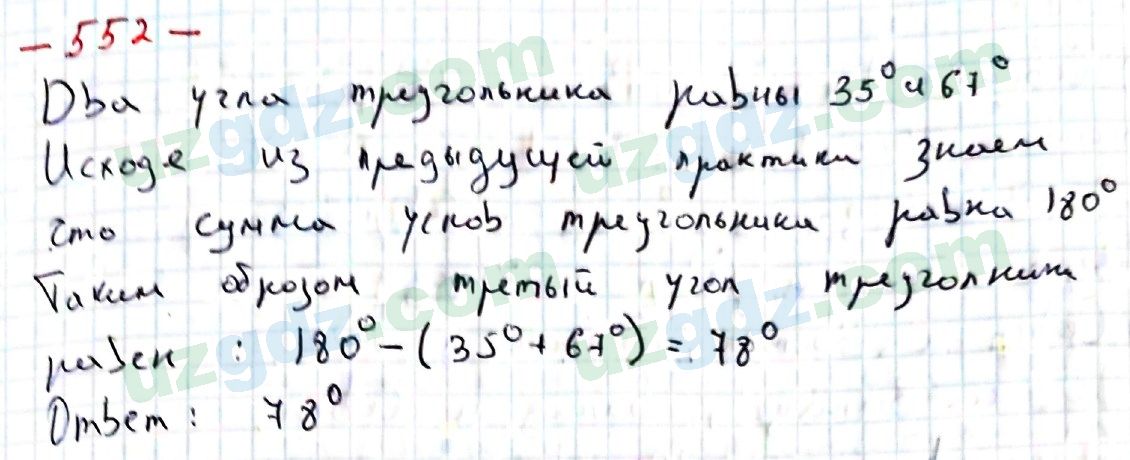 - 552 -
Два угла треугольника равны 35° и 67°
Исходе из предыдущей практики знаем
что сумма углов треугольника равна 180°
Таким образом третый угол треуголника
равен : 180° - (35° + 67°) = 78°
Ответ : 78°
uzgdz.com